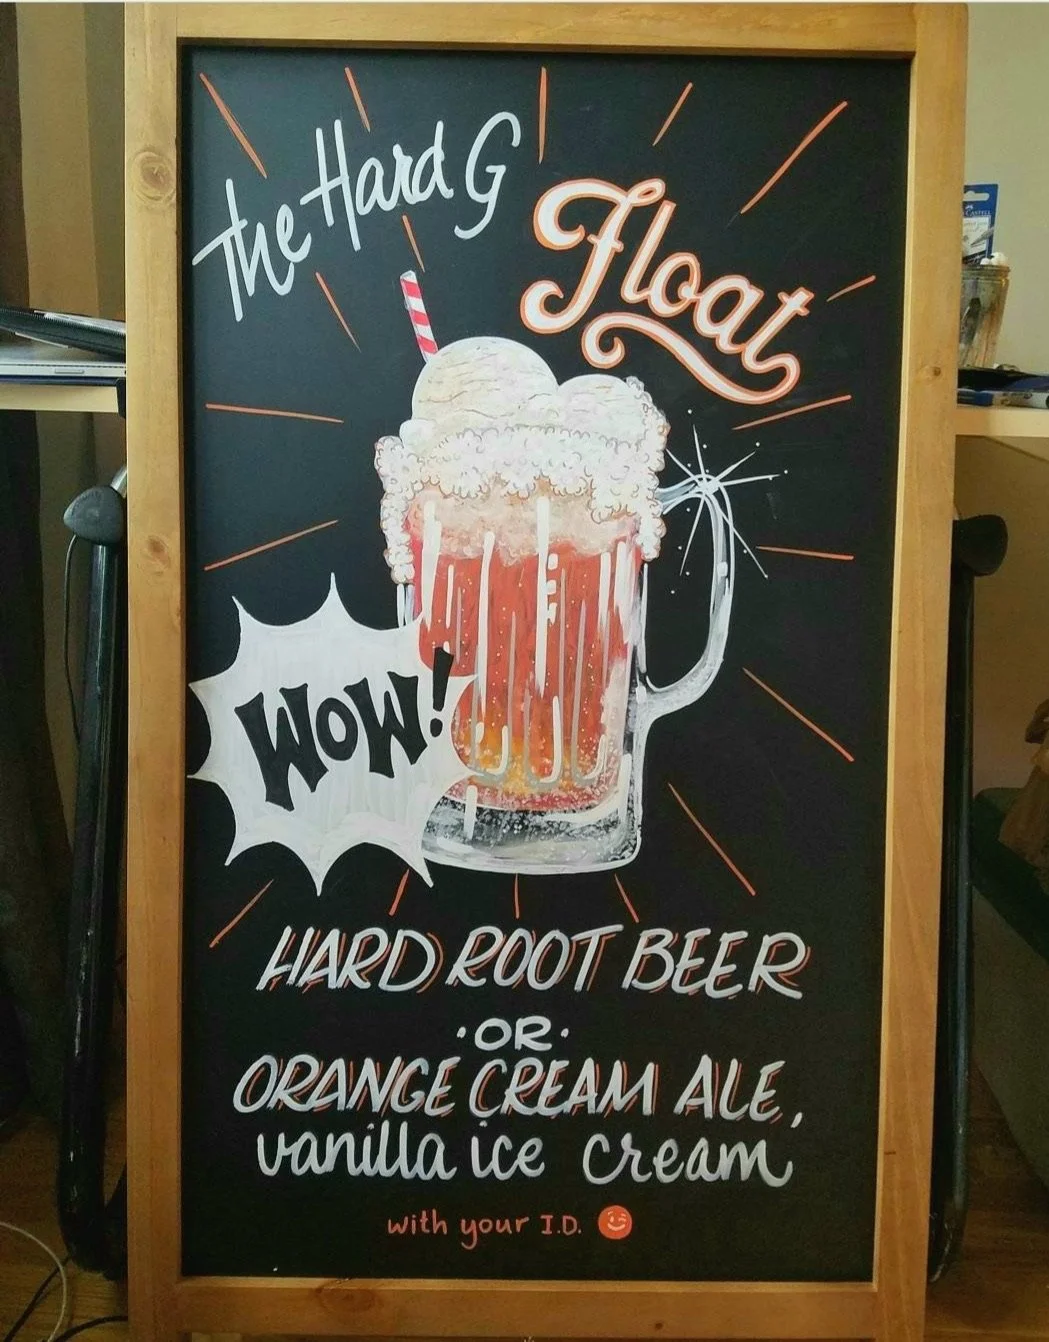 The Hard G
Float
WOW!
HARD ROOT BEER
·OR·
ORANGE CREAM ALE,
vanilla ice cream
with your I.D.